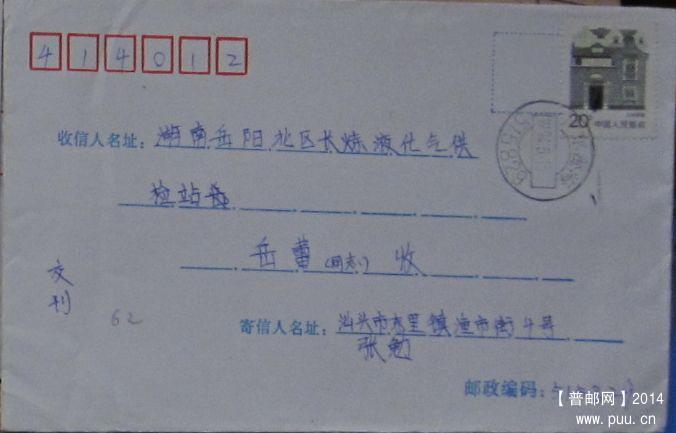 414012
20
中国人民邮政
收信人名址：湖南岳阳北区长炼液化气供
检站
岳蕾(同志)收
交
刊
62
寄信人名址：汕头市 里镇渔市街4号
张勉
邮政编码：
【普邮网】2014
www.puu.cn